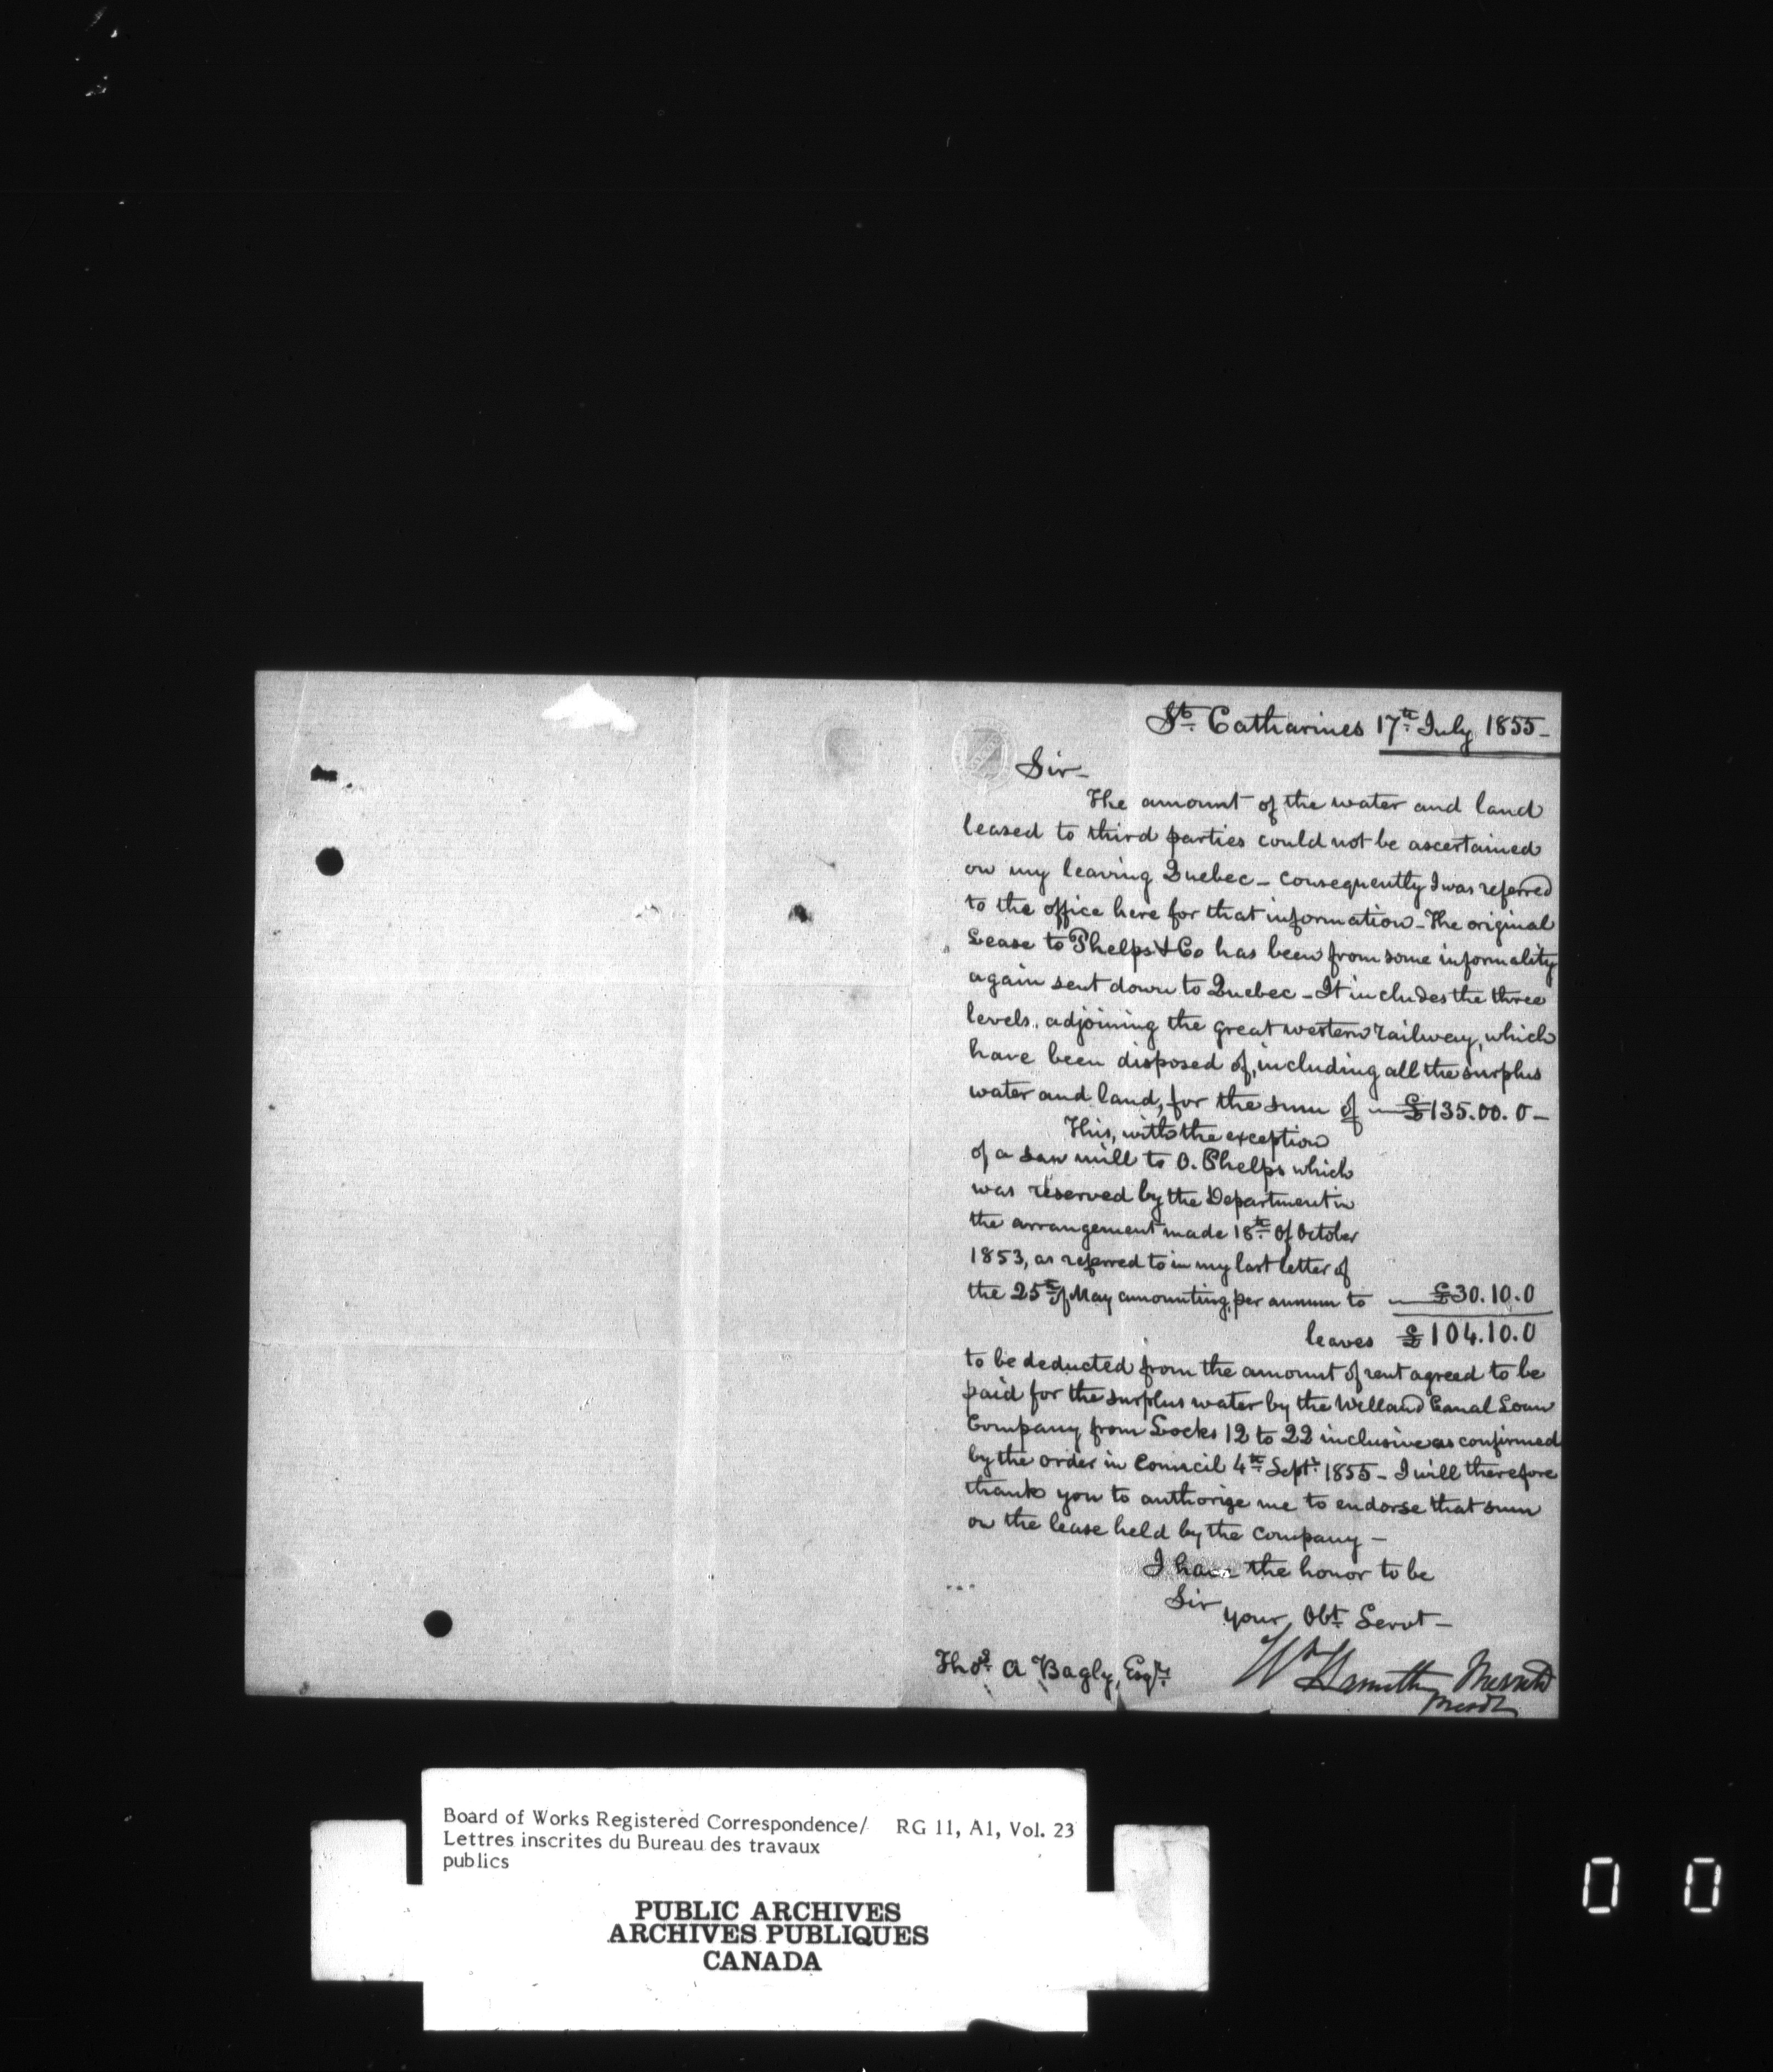 St. Catharines 17th July 1855 -
Sir -
The amount of the water and land
leased to third parties could not be ascertained
on my leaving Quebec - consequently I was referred
to the office here for that information - The original
Lease to Phelps & Co has been from some informality
again sent down to Quebec - It includes the three
levels, adjoining the great western railway, which
have been disposed of, including all the surplus
water and land, for the sum of £135.00.0 -
This, with the exception
of a saw mill to O. Phelps which
was reserved by the Department in
the arrangement made 18th of October
1853, as referred to in my last letter of
the 25th of May amounting, per annum to £30.10.0
leaves £104.10.0
to be deducted from the amount of rent agreed to be
paid for the surplus water by the Welland Canal Loan
Company from Locks 12 to 22 inclusive as confirmed
by the order in Council 4th Sept. 1855 - I will therefore
thank you to authorize me to endorse that sum
on the lease held by the Company -
I have the honor to be
Sir
your, Obt. Servt -
Thos. A Bagly, Esqr.
Wm Hamilton Merritt
Presdt
Board of Works Registered Correspondence/ RG 11, A1, Vol. 23
Lettres inscrites du Bureau des travaux
publics
PUBLIC ARCHIVES
ARCHIVES PUBLIQUES
CANADA
0 0